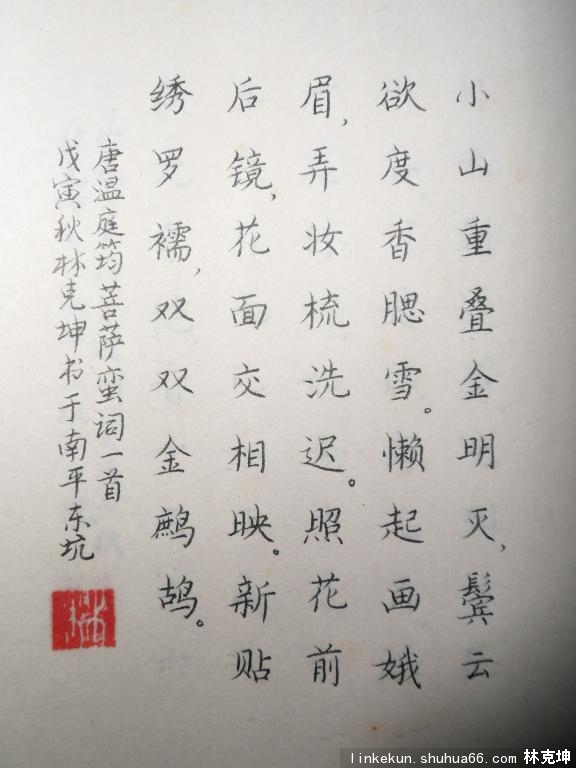 小山重叠金明灭，鬓云
欲度香腮雪。懒起画娥
眉，弄妆梳洗迟。照花前
后镜，花面交相映。新贴
绣罗襦，双双金鹧鸪。
唐温庭筠菩萨蛮词一首
戊寅秋林克坤书于南平东坑
linkekun.shuhua66.com 林克坤